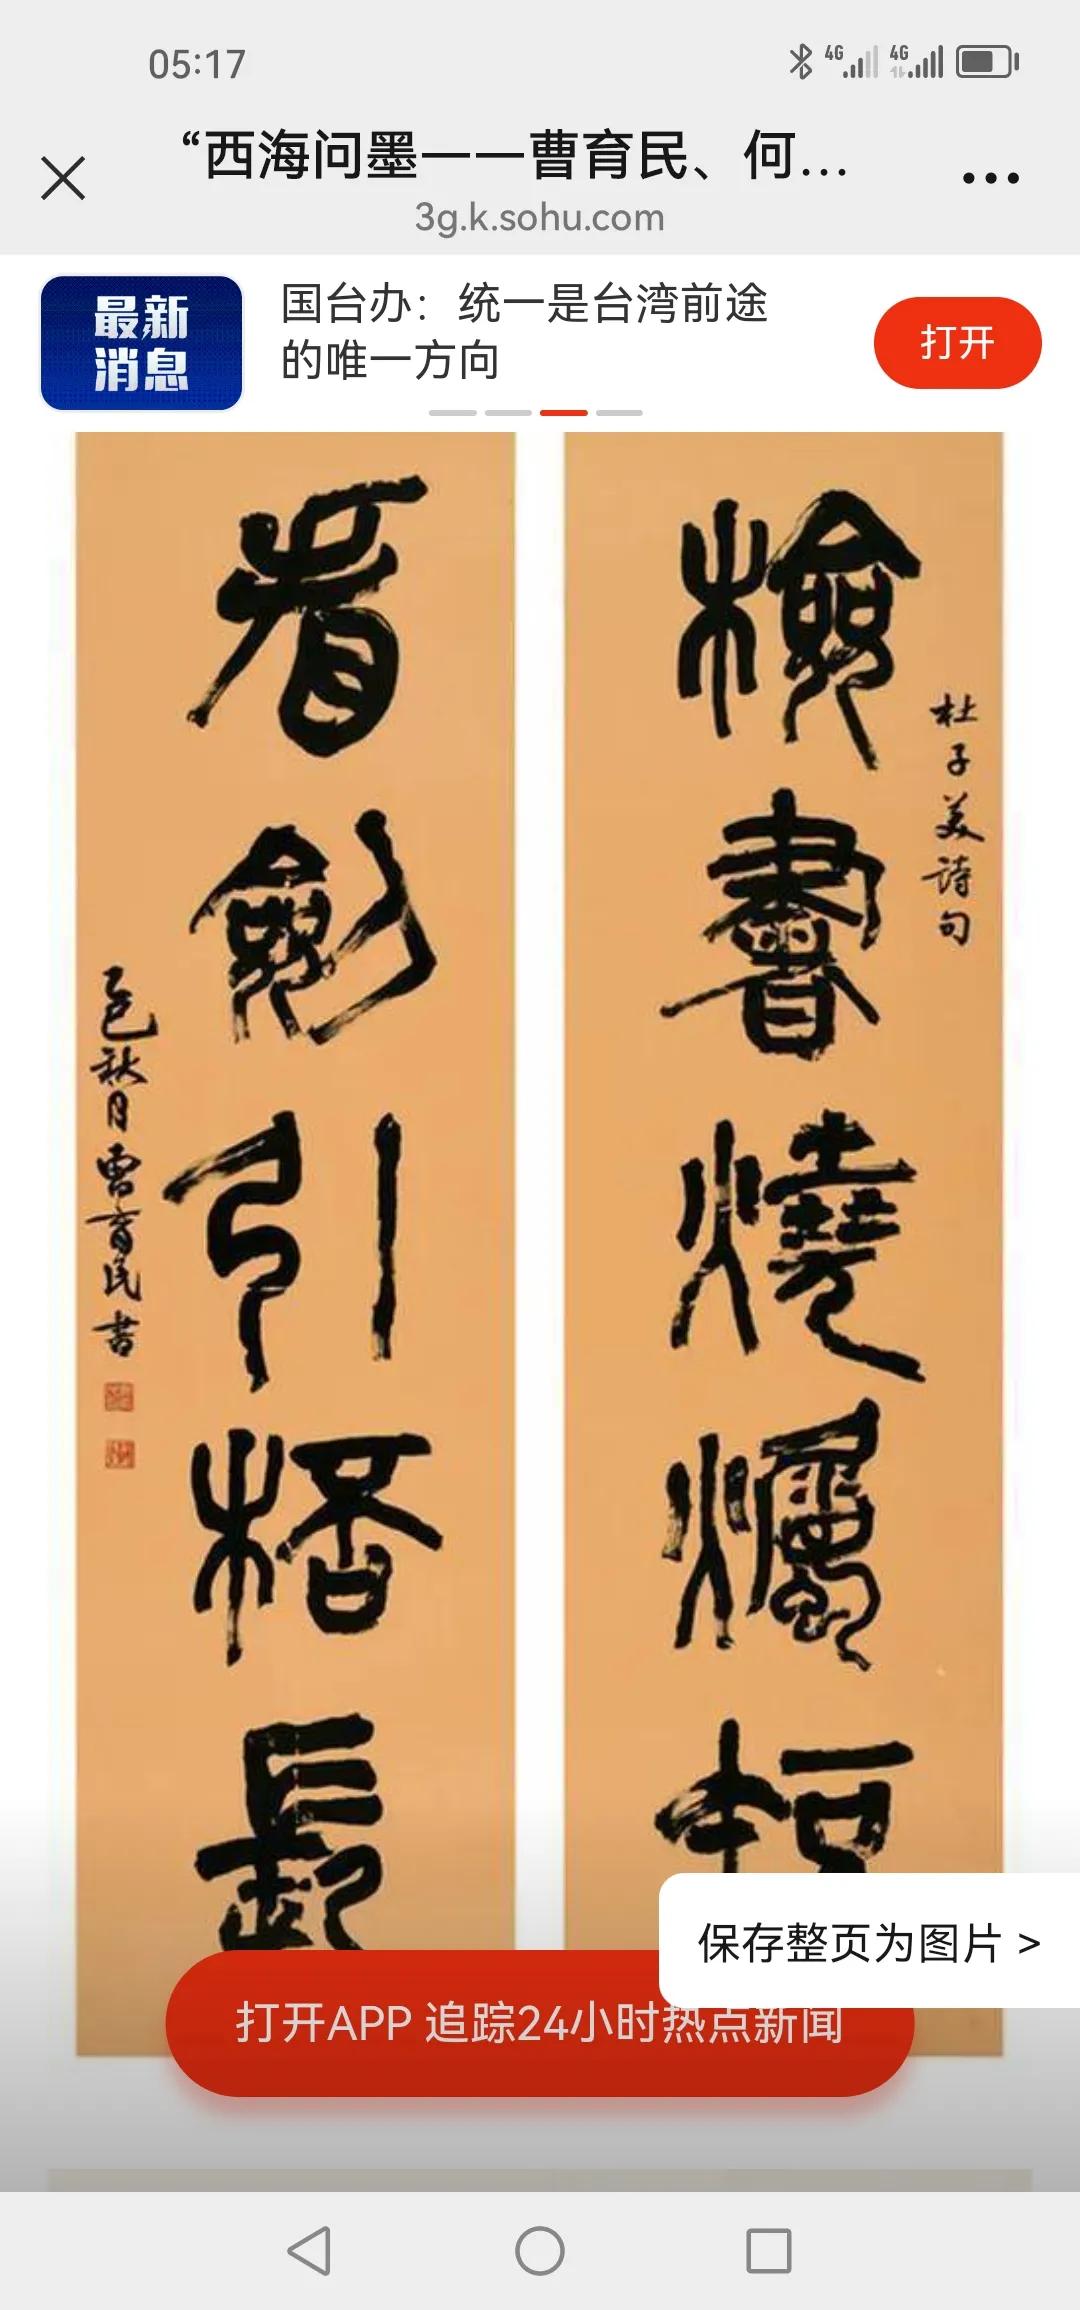 05:17
4G 4G
“西海问墨一一曹育民、何...
3g.k.sohu.com
最新
消息
国台办：统一是台湾前途
的唯一方向
打开
杜子美詩句
檢書燒爥短
看劍引桮長
乙巳秋月曹育民書
保存整页为图片 >
打开APP 追踪24小时热点新闻